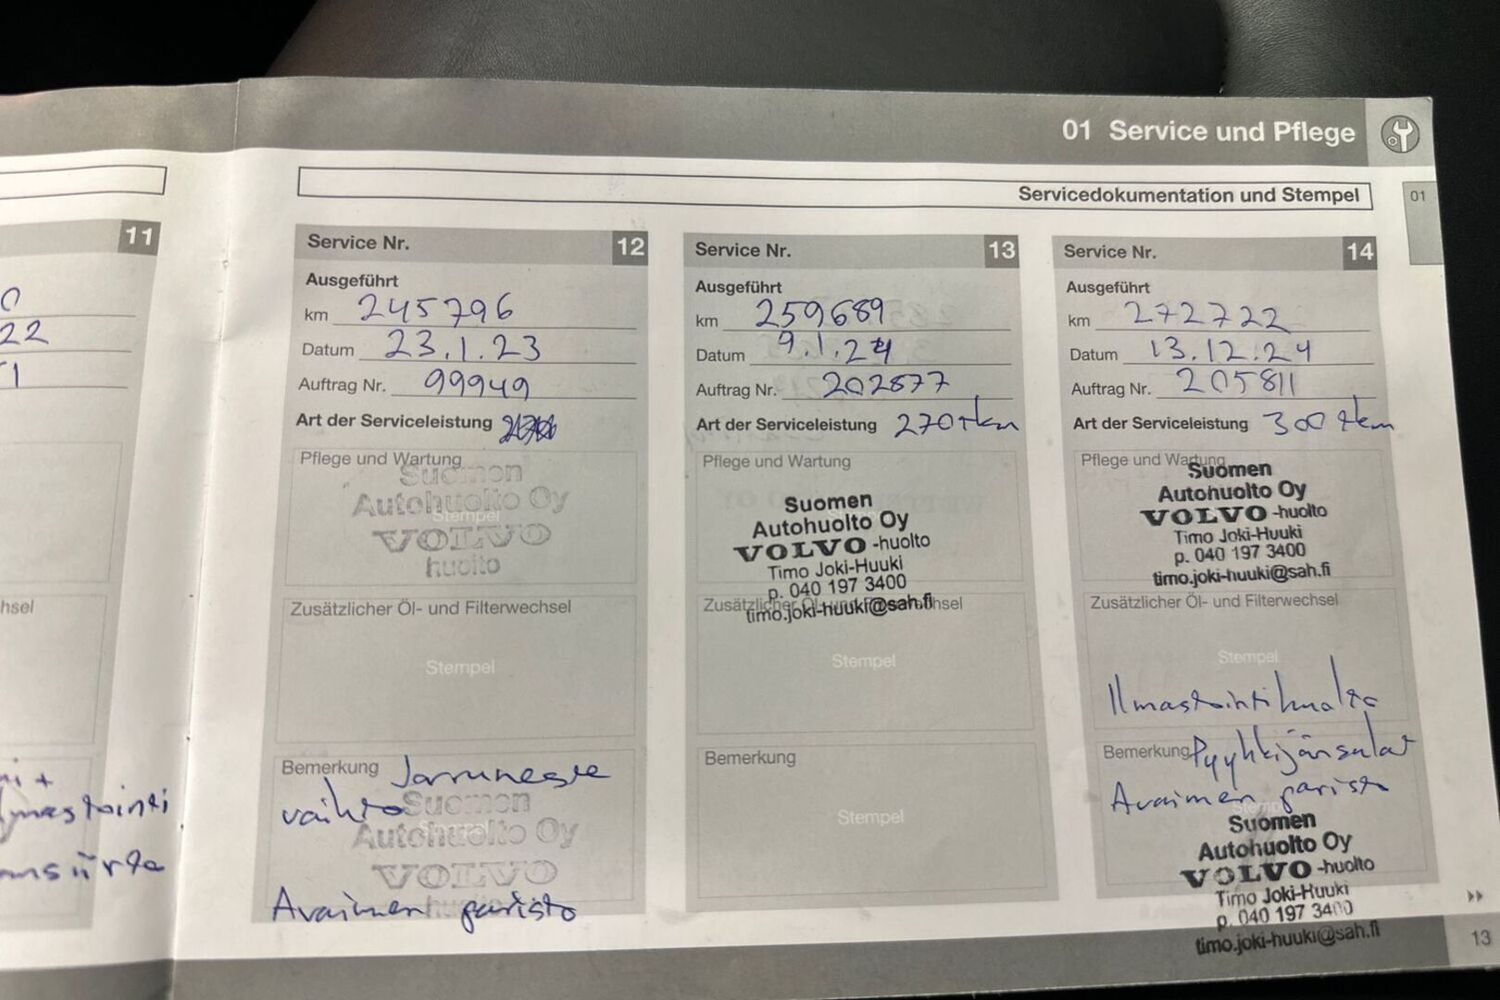 01 Service und Pflege
Servicedokumentation und Stempel
01
11
22
1
hsel
mastointi
Service Nr. 12
Ausgeführt
km 245796
Datum 23.1.23
Auftrag Nr. 99949
Art der Serviceleistung
Pflege und Wartung
Suomen
Autohuolto Oy
Stempel
VOLVO
huolto
Zusätzlicher Öl- und Filterwechsel
Stempel
Bemerkung Jarruneste
vaihto
Suomen
Autohuolto Oy
VOLVO
Avaimen paristo
Service Nr. 13
Ausgeführt
km 259689
Datum 9.1.24
Auftrag Nr. 202877
Art der Serviceleistung 270tkm
Pflege und Wartung
Suomen
Autohuolto Oy
VOLVO -huolto
Timo Joki-Huuki
p. 040 197 3400
Zusätzlicher Öl- und Filterwechsel
timo.joki-huuki@sah.fi
Stempel
Bemerkung
Stempel
Service Nr. 14
Ausgeführt
km 272722
Datum 13.12.24
Auftrag Nr. 205811
Art der Serviceleistung 300tkm
Pflege und Wartung
Suomen
Autohuolto Oy
VOLVO -huolto
Timo Joki-Huuki
p. 040 197 3400
timo.joki-huuki@sah.fi
Zusätzlicher Öl- und Filterwechsel
Stempel
Ilmastointihuolto
Bemerkung Pyyhkijänsulat
Avaimen paristo
Suomen
Autohuolto Oy
VOLVO -huolto
Timo Joki-Huuki
p. 040 197 3400
timo.joki-huuki@sah.fi
13